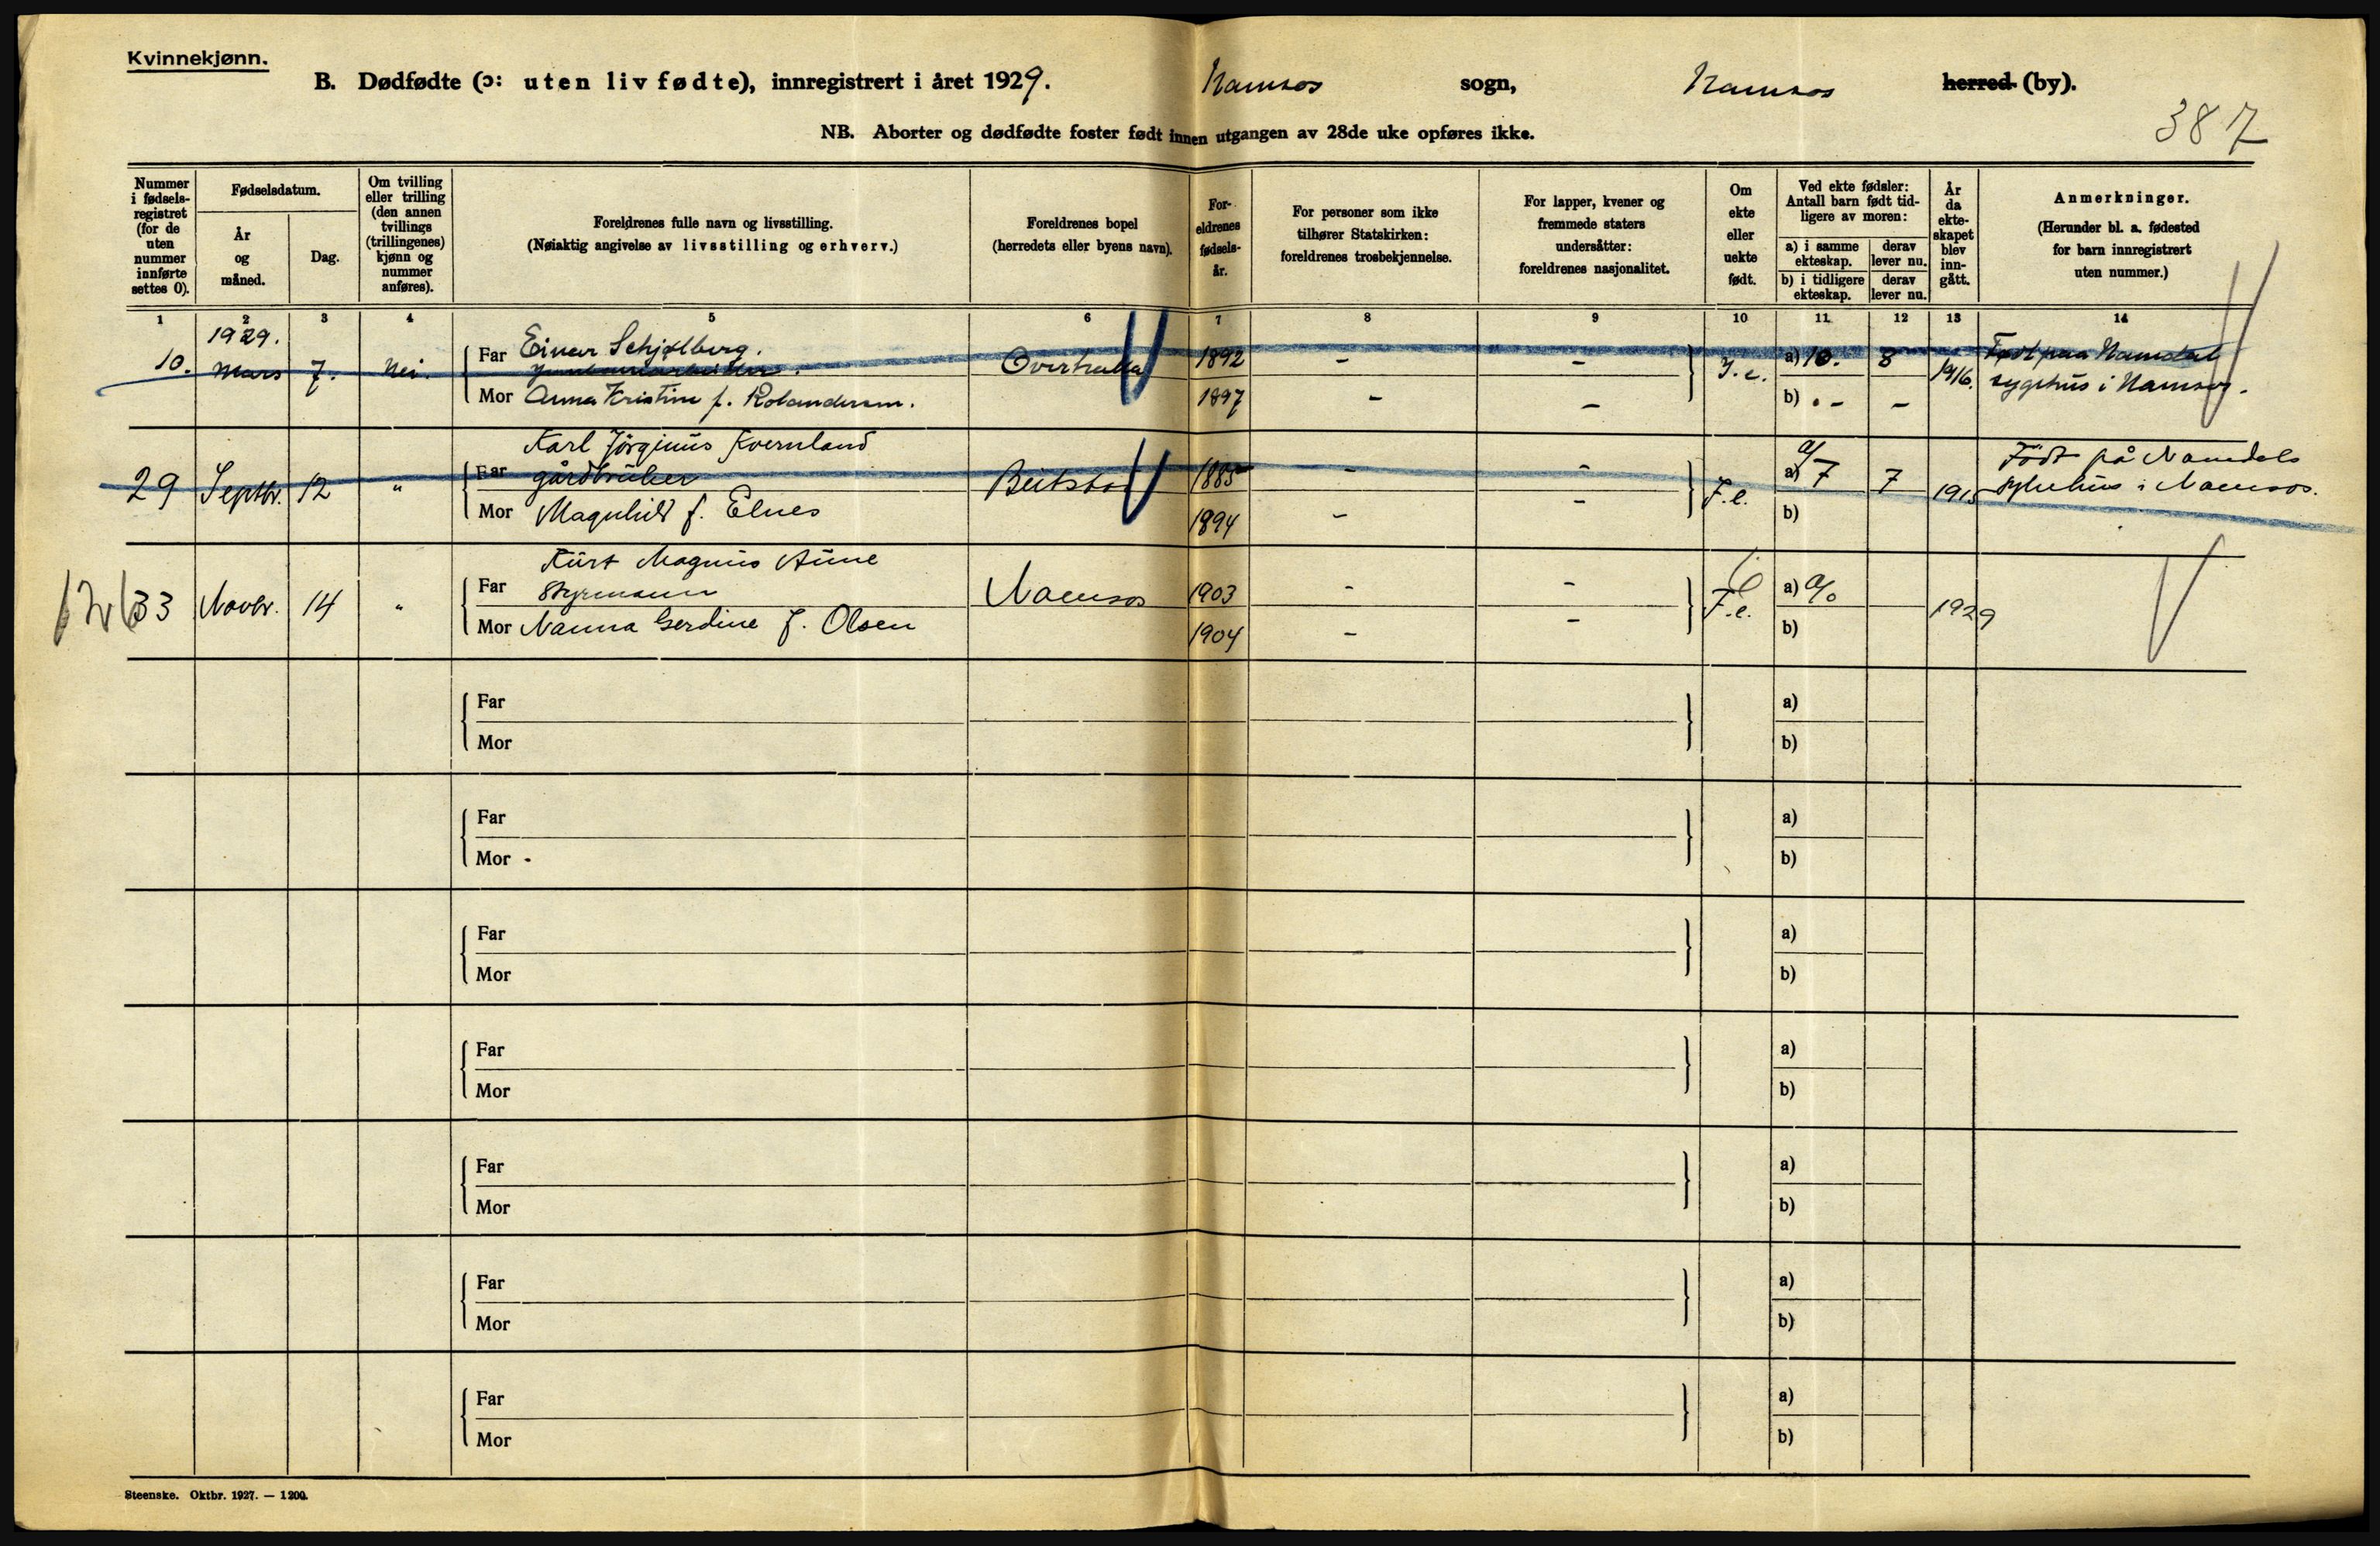 Kvinnekjønn.
B. Dødfødte (ɔ: uten liv fødte), innregistrert i året 1929. Namsos sogn, Namsos herred (by).
387
NB. Aborter og dødfødte foster født innen utgangen av 28de uke opføres ikke.
Nummer i fødsels-registret (for de uten nummer innførte settes 0).
Fødselsdatum.
År og måned.
Dag.
Om tvilling eller trilling (den annen tvillings (trillingenes) kjønn og nummer anføres).
Foreldrenes fulle navn og livsstilling.
(Nøiaktig angivelse av livsstilling og erhverv.)
Foreldrenes bopel
(herredets eller byens navn).
For-eldrenes fødsels-år.
For personer som ikke tilhører Statskirken: foreldrenes trosbekjennelse.
For lapper, kvener og fremmede staters undersåtter: foreldrenes nasjonalitet.
Om ekte eller uekte født.
Ved ekte fødsler: Antall barn født tid-ligere av moren:
a) i samme ekteskap.
derav lever nu.
b) i tidligere ekteskap.
derav lever nu.
År da ekte-skapet blev inn-gått.
Anmerkninger.
(Herunder bl. a. fødested for barn innregistrert uten nummer.)
1 2 3 4 5 6 7 8 9 10 11 12 13 14
1929.
10. Mars 7. Nei. Far Einar Schjølberg. Overhalla 1892 - - F.e. a) 10. 8 1916. Født paa Namdal
sygehus i Namsos.
Mor Anna Kristine f. Rolandsen. 1897 - - b) - -
Karl Jörginus Kvernland
29 Septbr. 12 " Far gårdbruker Beitstad 1885 - - F.e. a) 7 7 1915 Födt på Namdals
sykehus i Namsos.
Mor Magnhild f. Elnes 1894 - - b)
Kurt Magnus Aune
33 Novbr. 14 " Far Styrmann Namsos 1903 - - F.e. a) 0/0 1929
Mor Nanna Gerdine f. Olsen 1904 - - b)
Far a)
Mor b)
Far a)
Mor b)
Far a)
Mor b)
Far a)
Mor b)
Far a)
Mor b)
Far a)
Mor b)
Far a)
Mor b)
Steenske. Oktbr. 1927. — 1200.